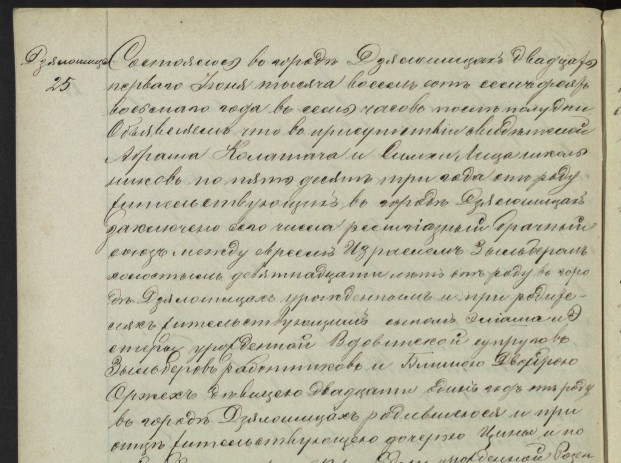 Дзялошице
25
Состоялось въ городѣ Дзялошицахъ двадцать
перваго Іюня тысяча восемь сотъ семьдесятъ
восьмаго года въ семь часовъ послѣ полудни
Объявляемъ что въ присутствіи свидѣтелей
Абрама Колатача и Симхи школь
никовъ по пять десятъ три года отъ роду
жительствующихъ въ городѣ Дзялошицахъ
заключено сего числа религіозный брачный
союзъ между евреемъ Израелемъ Зыльберомъ
холостымъ девятнадцати лѣтъ отъ роду въ горо
дѣ Дзялошицахъ урожденнымъ и при родите
ляхъ жительствующимъ сыномъ и Э
стеры урожденной Вдовинской супруговъ
Зыльберовъ работниковъ и Блимою Двойрою
Оржехъ двадцати одинъ годъ отъ роду
въ городѣ Дзялошицахъ родившеюся и при
отцѣ жительствующею дочерью и по
урожденной